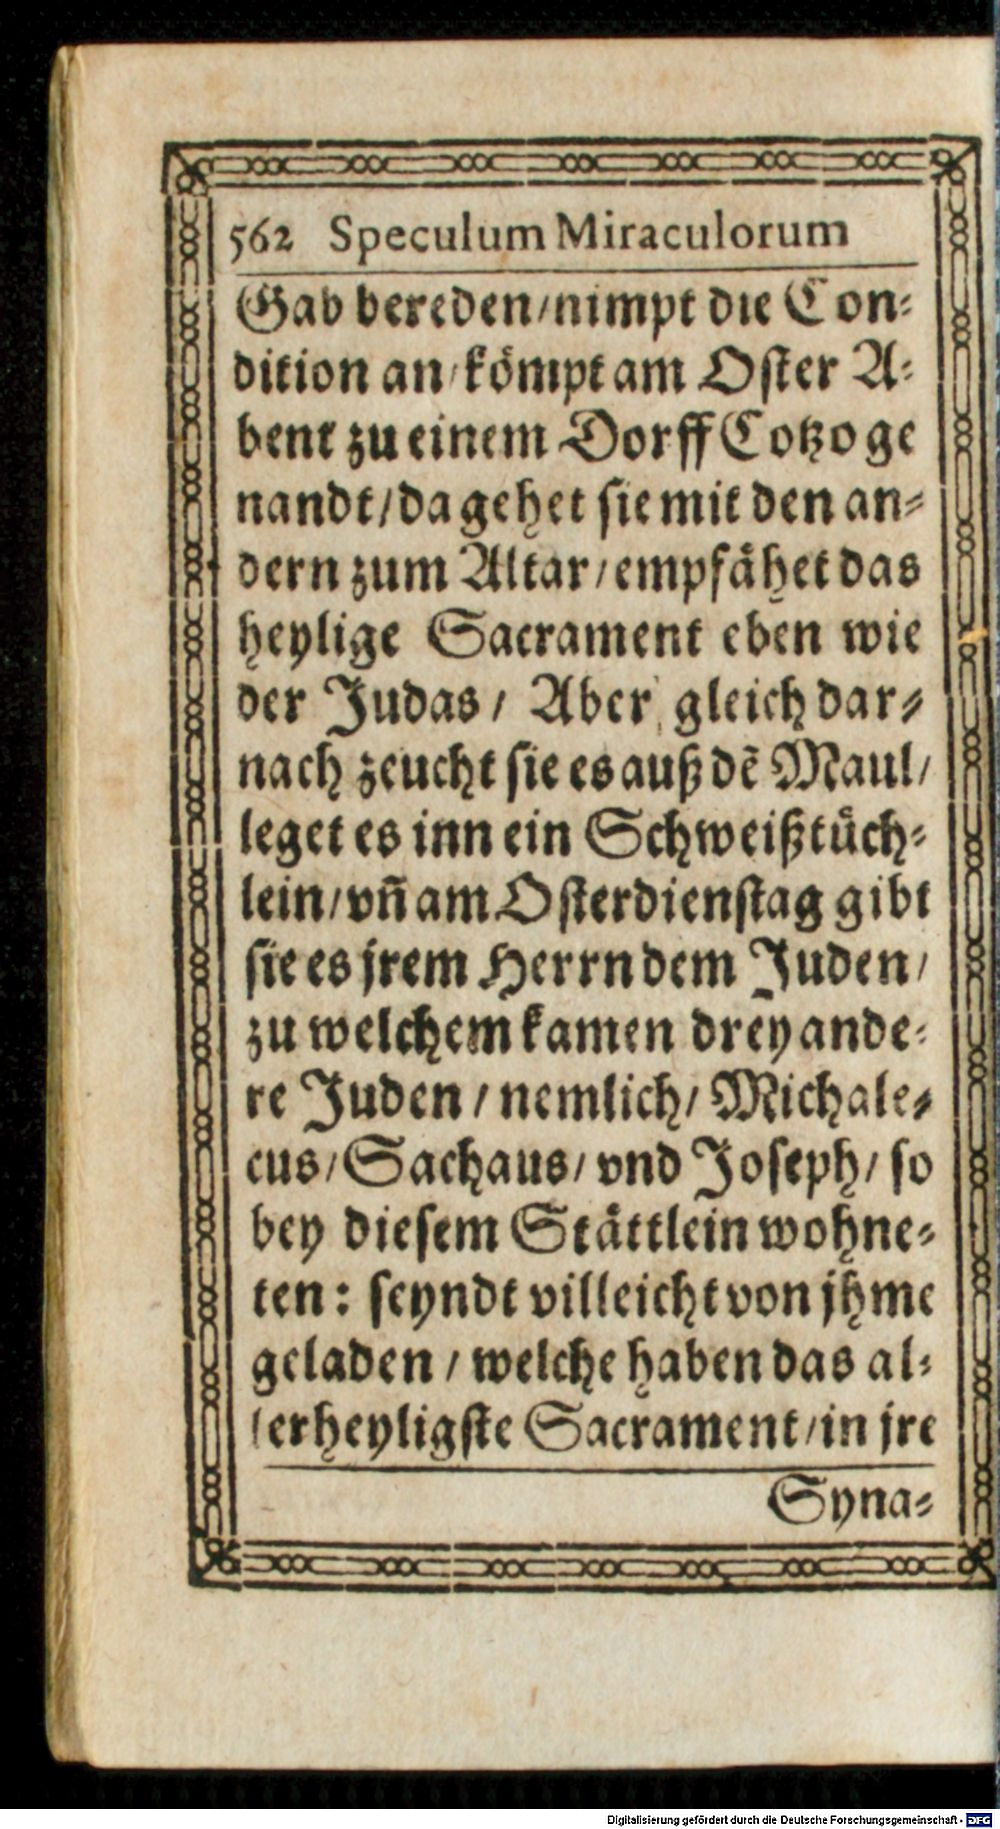 562 Speculum Miraculorum
Gab bereden / nimpt die Con-
dition an / kömpt am Oster A-
bent zu einem Dorff Cotzo ge
nandt / da gehet sie mit den an-
dern zum Altar / empfähet das
heylige Sacrament eben wie
der Judas / Aber gleich dar-
nach zeucht sie es auß dē Maul /
leget es inn ein Schweißtüch-
lein / vñ am Osterdienstag gibt
sie es jrem Herrn dem Juden /
zu welchem kamen drey ande-
re Juden / nemlich / Michale-
cus / Sachaus / vnd Joseph / so
bey diesem Stättlein wohne-
ten: seyndt villeicht von jhme
geladen / welche haben das al-
lerheyligste Sacrament / in jre
Syna-
Digitalisierung gefördert durch die Deutsche Forschungsgemeinschaft - DFG